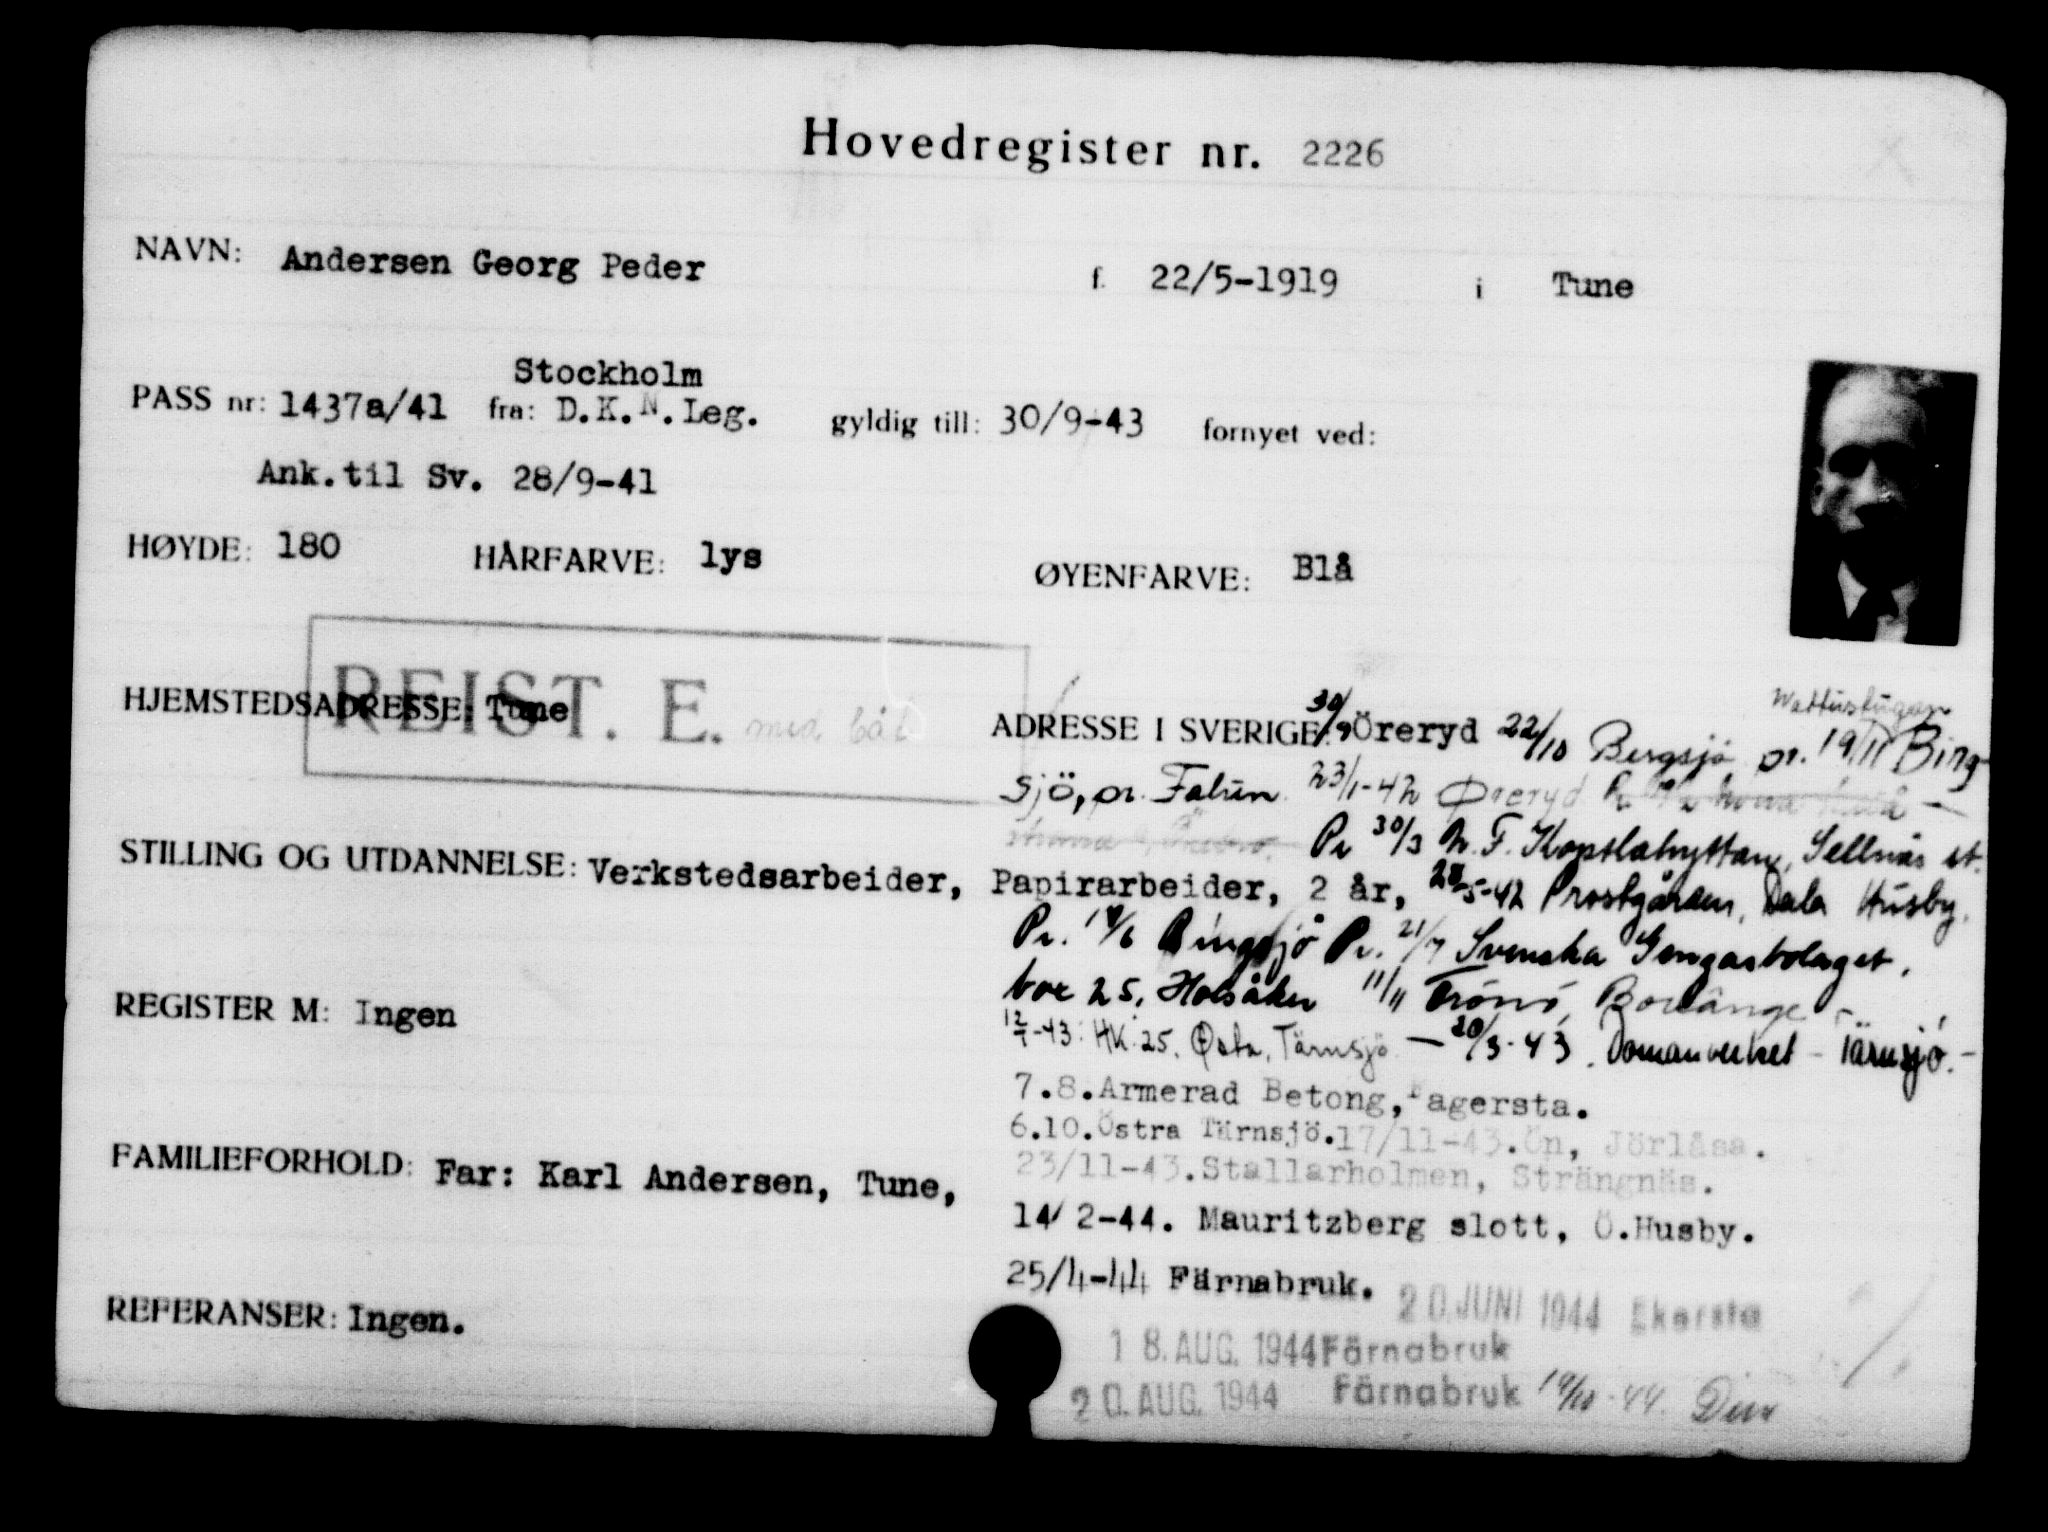 Hovedregister nr. 2226
NAVN: Andersen Georg Peder f. 22/5-1919 i Tune
Stockholm
PASS nr: 1437a/41 fra: D.K.N.Leg. gyldig till: 30/9-43 fornyet ved:
Ank.til Sv. 28/9-41
HØYDE: 180 HÅRFARVE: lys ØYENFARVE: Blå
REIST. E. med båt
HJEMSTEDSADRESSE: Tune
Wattustugan
ADRESSE I SVERIGE: 30/9 Öreryd 22/10 Bergsjö pr. 19/11 Bing-
sjö, pr. Falun 23/1-42 Øreryd
Pr 30/3 Kopslahyttan, Sellnäs st.
STILLING OG UTDANNELSE: Verkstedsarbeider, Papirarbeider, 2 år,
28/5-42 Prostgården, Dala Husby.
Pr. Bingsjö Pr. 21/7 Svenska Gengasbolaget,
box 25, Holsåker 11/11 Trönö, Borlänge
REGISTER M: Ingen
12/1-43: HK. 25. Östa, Tärnsjö — 20/3-43. Domänverket - Tärnsjö. -
7.8.Armerad Betong,Fagersta.
6.10.Östra Tärnsjö.17/11-43.Ön, Jörlåsa.
23/11-43.Stallarholmen, Strängnäs.
FAMILIEFORHOLD: Far: Karl Andersen, Tune,
14/ 2-44. Mauritzberg slott, Ö.Husby.
25/4-44 Färnabruk. 20. JUNI 1944 Ekersta
REFERANSER: Ingen.
18. AUG. 1944 Färnabruk
20. AUG. 1944 Färnabruk 19/10-44.